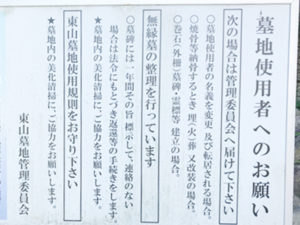 墓地使用者へのお願い
次の場合は管理委員会へ届けて下さい
○墓地使用者の名義を変更及び転居される場合。
○焼骨等納骨するとき 埋(火)葬 又改装の場合。
○巻石(外柵)墓碑・霊標等 建立の場合。
無縁墓の整理を行っています
○墓碑には一年間その旨 標示して、連絡のない
場合は法令にもとづき返還等の手続きをします。
★墓地内の美化清掃に、ご協力をお願いします。
東山墓地使用規則をお守り下さい
★墓地内の美化清掃に、ご協力をお願いします。
東山墓地管理委員会